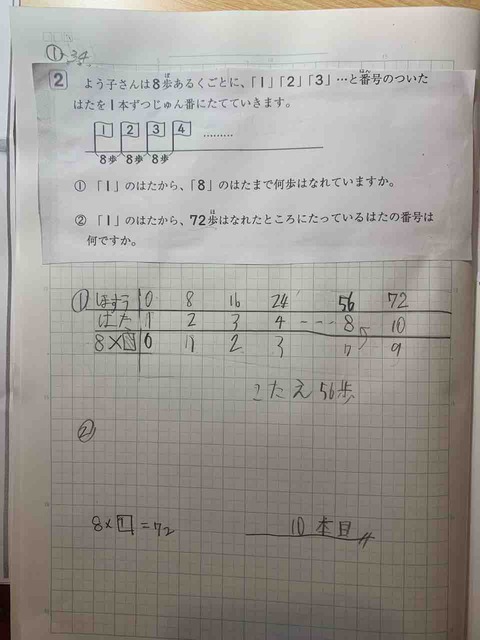 ① 34
2 よう子さんは8歩あるくごとに、「1」「2」「3」…と番号のついた
はたを1本ずつじゅん番にたてていきます。
1 2 3 4 ………
8歩 8歩 8歩
① 「1」のはたから、「8」のはたまで何歩はなれていますか。
② 「1」のはたから、72歩はなれたところにたっているはたの番号は
何ですか。
① ほすう 0 8 16 24 56 72
はた 1 2 3 4 --- 8 10
8×□ 0 1 2 3 7 9
こたえ 56歩
②
8×□=72 10本目